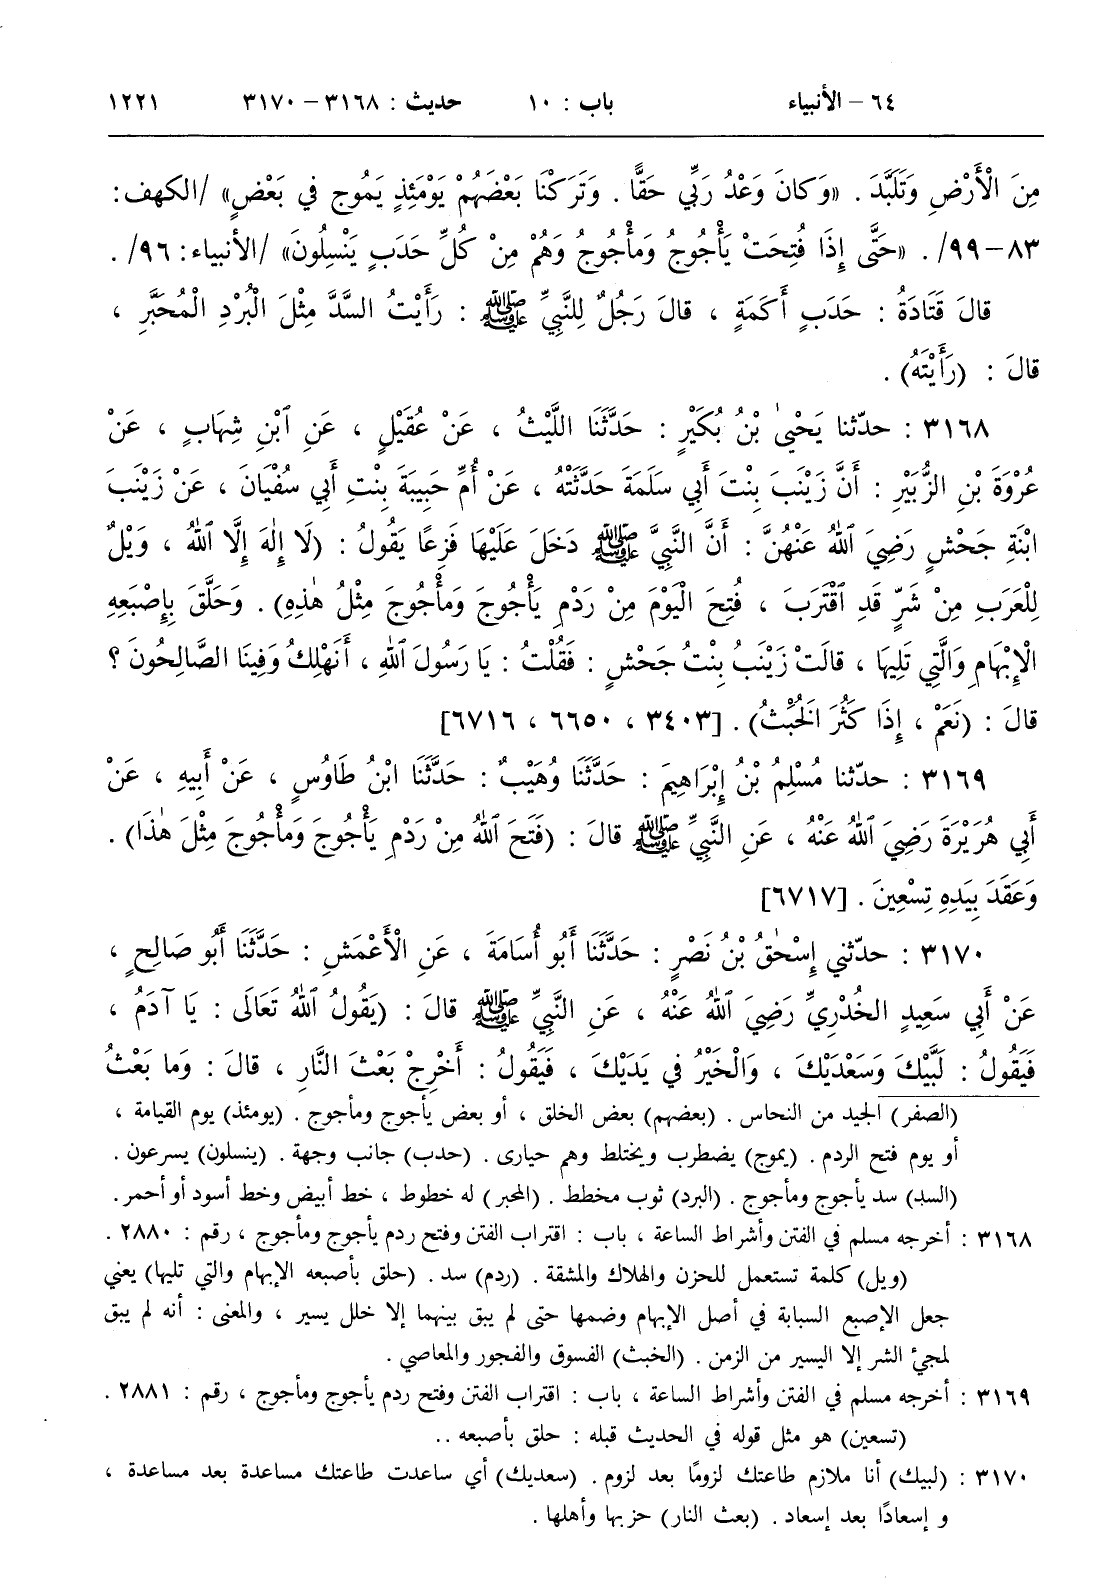 ٦٤ – الأنبياء باب : ١٠ حديث : ٣١٦٨ – ٣١٧٠ ١٢٢١
مِنَ الْأَرْضِ وَتَلَبَّدَ . «وَكانَ وَعْدُ رَبِّي حَقًّا . وَتَرَكْنَا بَعْضَهُمْ يَوْمَئِذٍ يَمُوج في بَعْضٍ» /الكهف:
٨٣ – ٩٩/ . «حَتَّى إِذَا فُتِحَتْ يَأْجُوجُ وَمَأْجُوجُ وَهُمْ مِنْ كُلِّ حَدَبٍ يَنْسِلُونَ» /الأنبياء: ٩٦/ .
قالَ قَتَادَةُ : حَدَبٍ أَكَمَةٍ ، قالَ رَجُلٌ لِلنَّبِيِّ ﷺ : رَأَيْتُ السَّدَّ مِثْلَ الْبُرْدِ الْمُحَبَّرِ ،
قالَ : (رَأَيْتَهُ) .
٣١٦٨ : حدّثنا يَحْيىٰ بْنُ بُكَيْرٍ : حَدَّثَنَا اللَّيْثُ ، عَنْ عُقَيْلٍ ، عَنِ ٱبْنِ شِهَابٍ ، عَنْ
عُرْوَةَ بْنِ الزُّبَيْرِ : أَنَّ زَيْنَبَ بِنْتَ أَبِي سَلَمَةَ حَدَّثَتْهُ ، عَنْ أُمِّ حَبِيبَةَ بِنْتِ أَبِي سُفْيَانَ ، عَنْ زَيْنَبَ
ابْنَةِ جَحْشٍ رَضِيَ ٱللهُ عَنْهُنَّ : أَنَّ النَّبِيَّ ﷺ دَخَلَ عَلَيْهَا فَزِعًا يَقُولُ : (لَا إِلٰهَ إِلَّا ٱللهُ ، وَيْلٌ
لِلْعَرَبِ مِنْ شَرٍّ قَدِ ٱقْتَرَبَ ، فُتِحَ الْيَوْمَ مِنْ رَدْمِ يَأْجُوجَ وَمَأْجُوجَ مِثْلُ هٰذِهِ) . وَحَلَّقَ بِإِصْبَعِهِ
الْإِبْهَامِ وَالَّتِي تَلِيهَا ، قالَتْ زَيْنَبُ بِنْتُ جَحْشٍ : فَقُلْتُ : يَا رَسُولَ ٱللهِ ، أَنَهْلِكُ وَفِينَا الصَّالِحُونَ ؟
قالَ : (نَعَمْ ، إِذَا كَثُرَ الْخُبْثُ) . [٣٤٠٣ ، ٦٦٥٠ ، ٦٧١٦]
٣١٦٩ : حدّثنا مُسْلِمُ بْنُ إِبْرَاهِيمَ : حَدَّثَنَا وُهَيْبٌ : حَدَّثَنَا ابْنُ طَاوُسٍ ، عَنْ أَبِيهِ ، عَنْ
أَبِي هُرَيْرَةَ رَضِيَ ٱللهُ عَنْهُ ، عَنِ النَّبِيِّ ﷺ قالَ : (فَتَحَ ٱللهُ مِنْ رَدْمِ يَأْجُوجَ وَمَأْجُوجَ مِثْلَ هٰذَا) .
وَعَقَدَ بِيَدِهِ تِسْعِينَ . [٦٧١٧]
٣١٧٠ : حدّثني إِسْحٰقُ بْنُ نَصْرٍ : حَدَّثَنَا أَبُو أُسَامَةَ ، عَنِ الْأَعْمَشِ : حَدَّثَنَا أَبُو صَالِحٍ ،
عَنْ أَبِي سَعِيدٍ الخُدْرِيِّ رَضِيَ ٱللهُ عَنْهُ ، عَنِ النَّبِيِّ ﷺ قالَ : (يَقُولُ ٱللهُ تَعَالَى : يَا آدَمُ ،
فَيَقُولُ : لَبَّيْكَ وَسَعْدَيْكَ ، وَالْخَيْرُ في يَدَيْكَ ، فَيَقُولُ : أَخْرِجْ بَعْثَ النَّارِ ، قالَ : وَما بَعْثُ
(الصفر) الجيد من النحاس . (بعضهم) بعض الخلق ، أو بعض يأجوج ومأجوج . (يومئذ) يوم القيامة ،
أو يوم فتح الردم . (يموج) يضطرب ويختلط وهم حيارى . (حدب) جانب وجهة . (ينسلون) يسرعون .
(السد) سد يأجوج ومأجوج . (البرد) ثوب مخطط . (المحبر) له خطوط ، خط أبيض وخط أسود أو أحمر.
٣١٦٨ : أخرجه مسلم في الفتن وأشراط الساعة ، باب : اقتراب الفتن وفتح ردم يأجوج ومأجوج ، رقم : ٢٨٨٠ .
(ويل) كلمة تستعمل للحزن والهلاك والمشقة . (ردم) سد . (حلق بأصبعه الإبهام والتي تليها) يعني
جعل الإصبع السبابة في أصل الإبهام وضمها حتى لم يبق بينهما إلا خلل يسير ، والمعنى : أنه لم يبق
لمجيئ الشر إلا اليسير من الزمن . (الخبث) الفسوق والفجور والمعاصي .
٣١٦٩ : أخرجه مسلم في الفتن وأشراط الساعة ، باب : اقتراب الفتن وفتح ردم يأجوج ومأجوج ، رقم : ٢٨٨١ .
(تسعين) هو مثل قوله في الحديث قبله : حلق بأصبعه ..
٣١٧٠ : (لبيك) أنا ملازم طاعتك لزومًا بعد لزوم . (سعديك) أي ساعدت طاعتك مساعدة بعد مساعدة ،
و إسعادًا بعد إسعاد . (بعث النار) حزبها وأهلها .